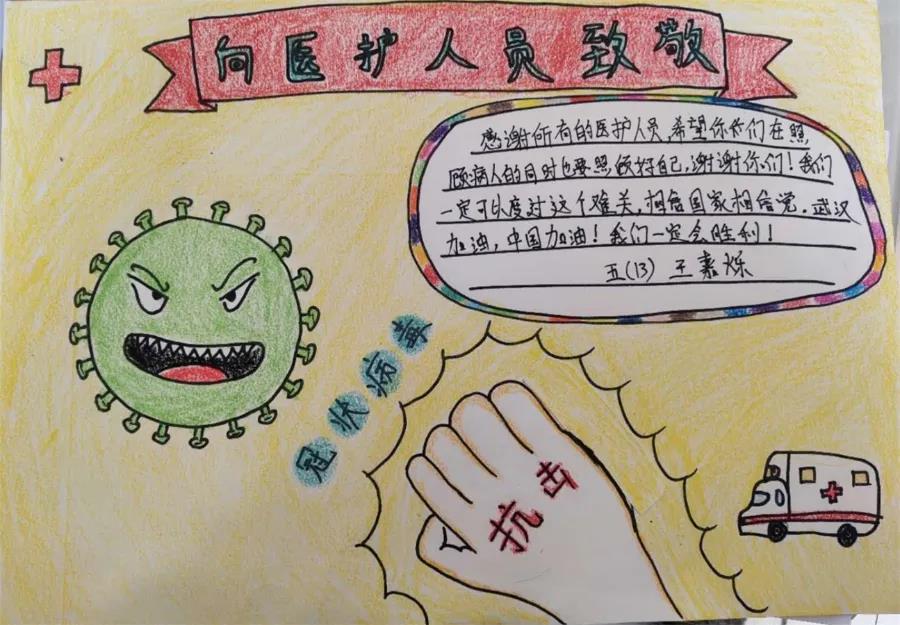 向医护人员致敬
感谢所有的医护人员,希望你们在照
顾病人的同时也要照顾好自己,谢谢你们!我们
一定可以度过这个难关,相信国家相信党。武汉
加油,中国加油!我们一定会胜利!
五(13) 王嘉烁
冠状病毒
抗击